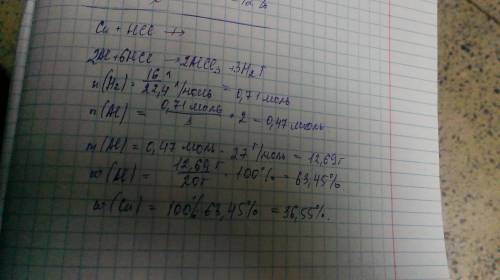 Cu + HCl →
2Al + 6HCl → 2AlCl₃ + 3H₂↑
n(H₂) = 16 л / 22,4 л/моль = 0,71 моль
n(Al) = 0,71 моль / 3 · 2 = 0,47 моль
m(Al) = 0,47 моль · 27 г/моль = 12,69 г
w(Al) = 12,69 г / 20 г · 100% = 63,45%
w(Cu) = 100% 63,45% = 36,55%.